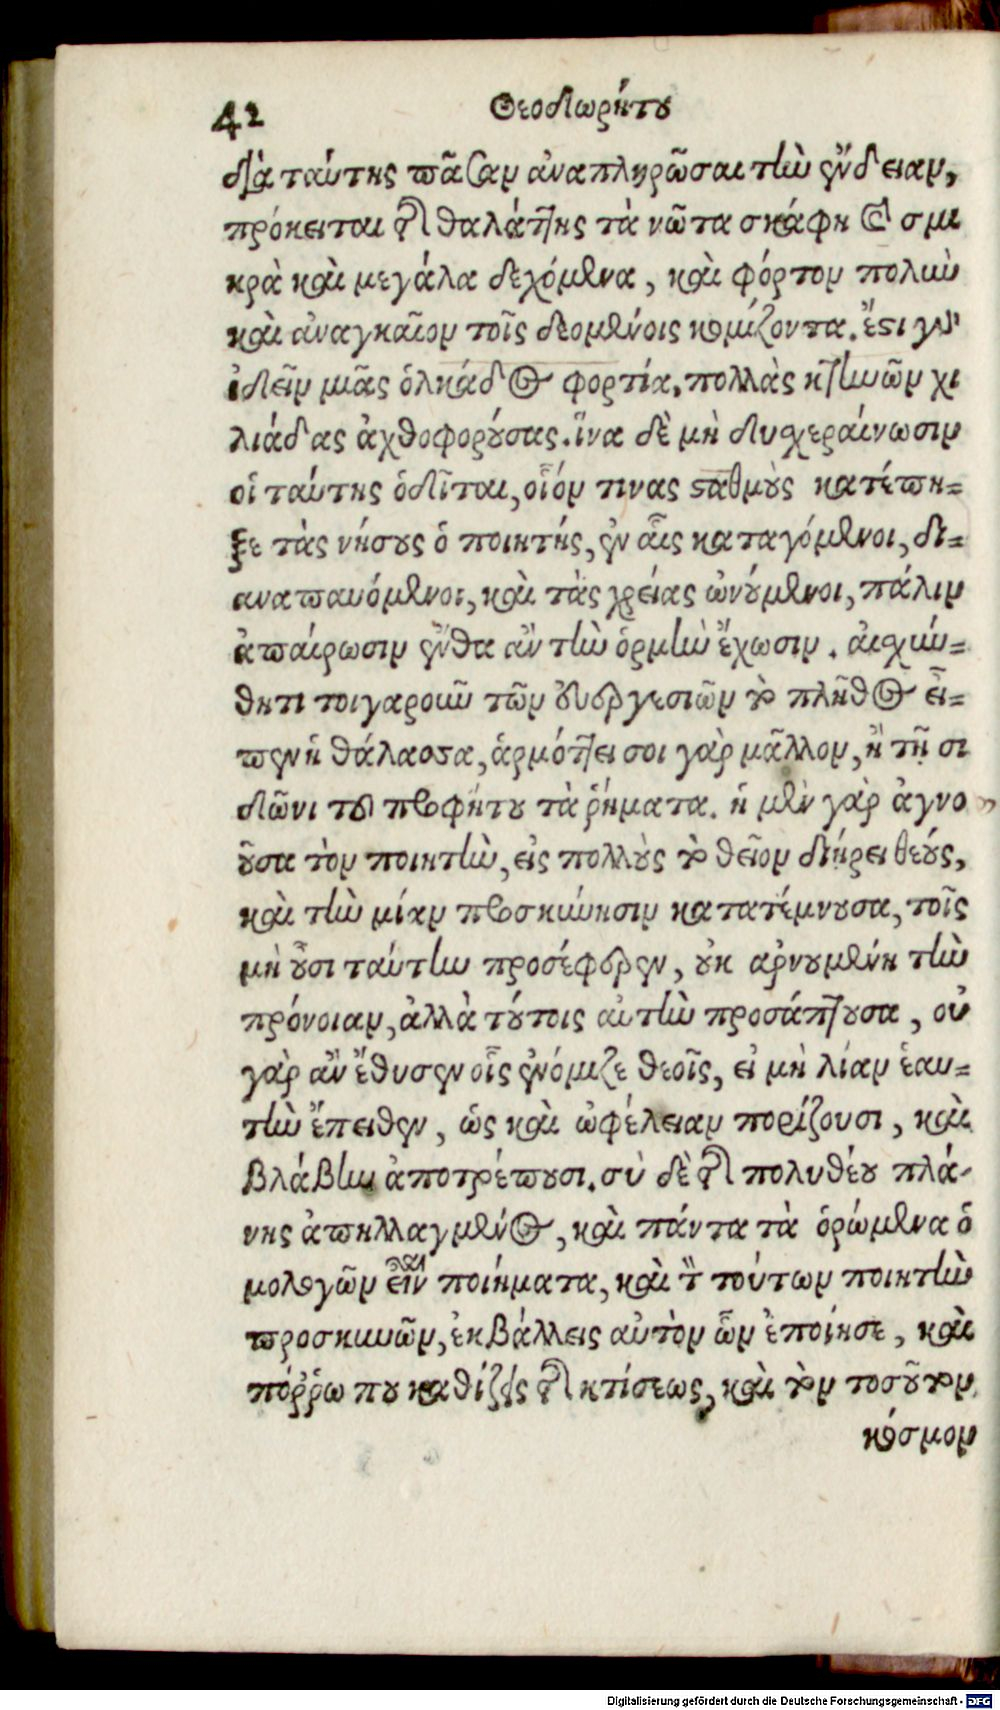 42 Θεοδωρήτου
διὰ ταύτης πᾶσαν ἀναπληρῶσαι τὴν ἔνδειαν,
πρόκειται τῆς θαλάττης τὰ νῶτα σκάφη καὶ σμι
κρὰ καὶ μεγάλα δεχόμενα, καὶ φόρτον πολὺν
καὶ ἀναγκαῖον τοῖς δεομένοις κομίζοντα. ἔστι γὰρ
ἰδεῖν μιᾶς ὁλκάδος φορτία, πολλὰς κτηνῶν χι
λιάδας ἀχθοφορούσας. ἵνα δὲ μὴ δυσχεραίνωσιν
οἱ ταύτης ὁδῖται, οἷόν τινας σταθμοὺς κατέπη-
ξε τὰς νήσους ὁ ποιητής, ἐν αἷς καταγόμενοι, δι-
αναπαυόμενοι, καὶ τὰς χρείας ὠνούμενοι, πάλιν
ἀπαίρωσιν ἔνθα ἂν τὴν ὁρμὴν ἔχωσιν. αἰσχύν-
θητι τοιγαροῦν τῶν εὐεργεσιῶν τὸ πλῆθος εἶ-
πεν ἡ θάλασσα, ἁρμόττει σοι γὰρ μᾶλλον, ἢ τῇ σι
δῶνι τοῦ προφήτου τὰ ῥήματα. ἡ μὲν γὰρ ἀγνο
οῦσα τὸν ποιητὴν, εἰς πολλοὺς τὸ θεῖον διῄρει θεούς,
καὶ τὴν μίαν προσκύνησιν κατατέμνουσα, τοῖς
μὴ οὖσι ταύτην προσέφερεν, οὐκ ἀρνουμένη τὴν
πρόνοιαν, ἀλλὰ τούτοις αὐτὴν προσάπτουσα, οὐ
γὰρ ἂν ἔθυσεν οἷς ἐνόμιζε θεοῖς, εἰ μὴ λίαν ἑαυ-
τὴν ἔπειθεν, ὡς καὶ ὠφέλειαν πορίζουσι, καὶ
βλάβην ἀποτρέπουσι. σὺ δὲ τῆς πολυθέου πλά-
νης ἀπηλλαγμένος, καὶ πάντα τὰ ὁρώμενα ὁ
μολογῶν εἶναι ποιήματα, καὶ τὸν τούτων ποιητὴν
προσκυνῶν, ἐκβάλλεις αὐτὸν ὧν ἐποίησε, καὶ
πόῤῥω που καθίζεις τῆς κτίσεως, καὶ τὸν τοσοῦτον
κόσμον
Digitalisierung gefördert durch die Deutsche Forschungsgemeinschaft - DFG